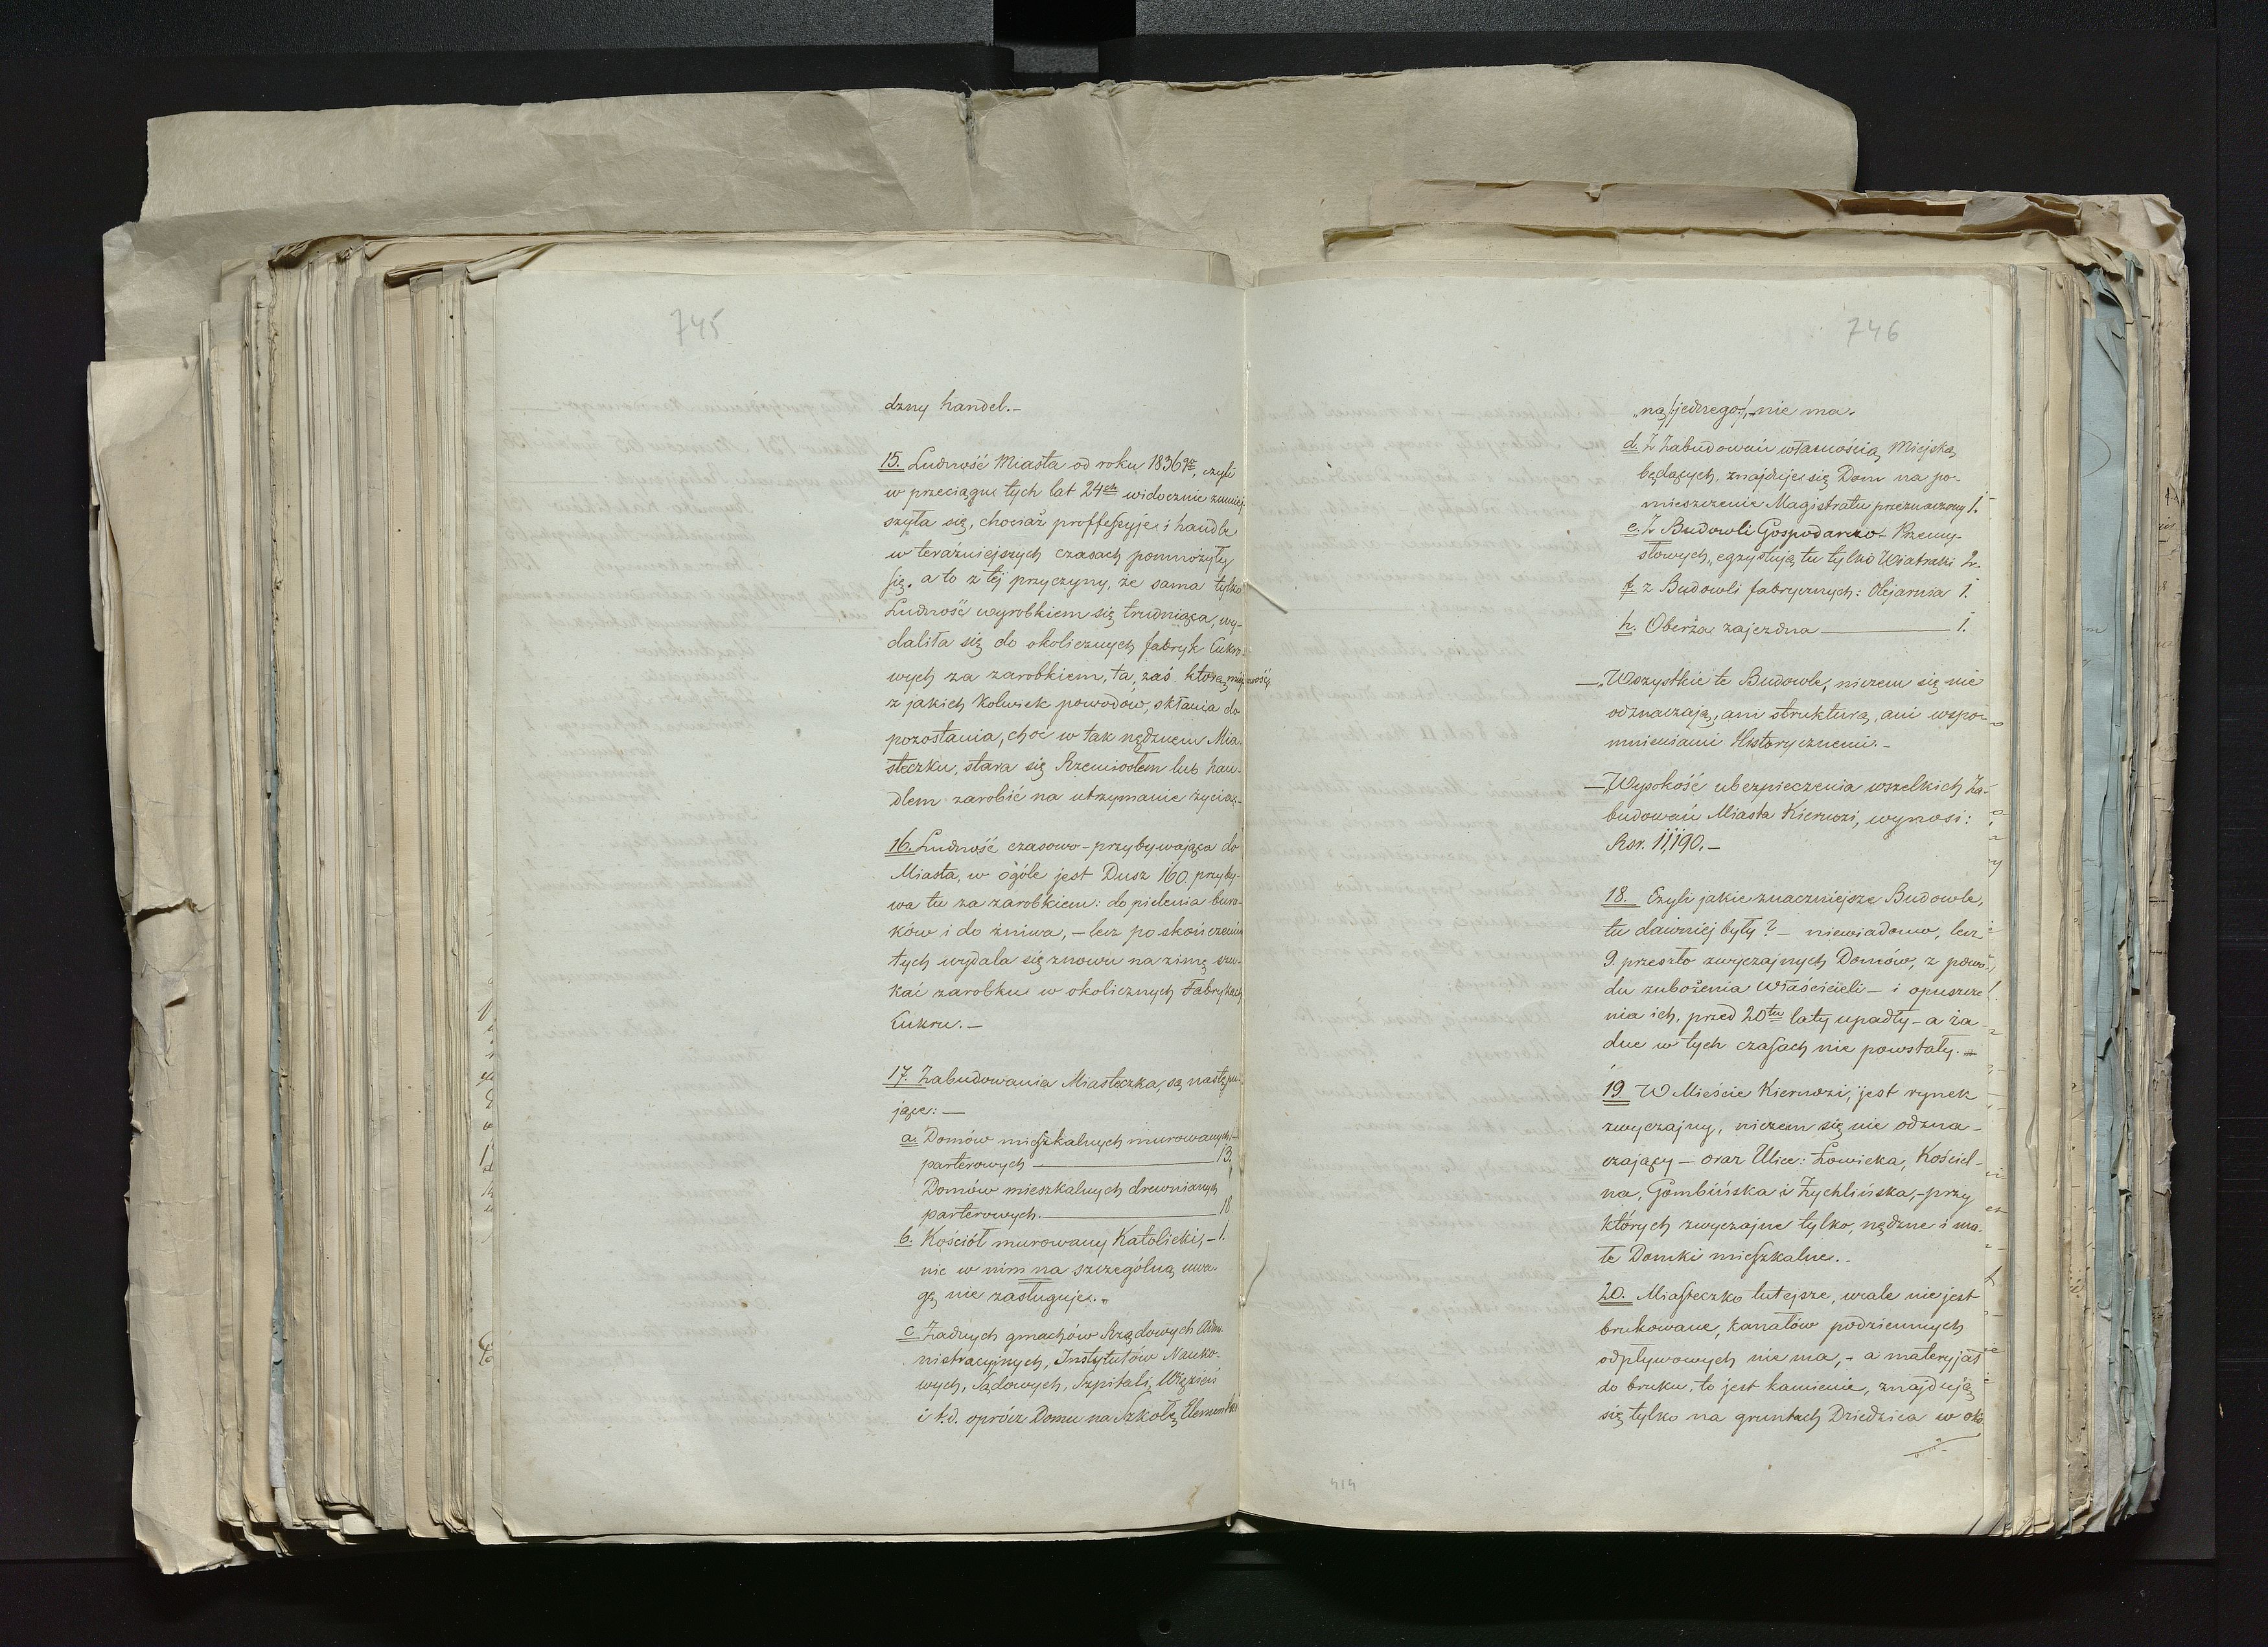 745
dzny handel.-
15. Ludność Miasta od roku 1836go, czyli
w przeciągu tych lat 24ch widocznie zmniej-
szyła się, chociaż proffessyje i handle
w teraźniejszych czasach pomnożyły
się. a to z tej przyczyny, że sama tylko
Ludność wyrobkiem się trudniąca, wy-
daliła się do okolicznych fabryk Cukro-
wych za zarobkiem, ta, zaś która
z jakich kolwiek powodów, skłania do
pozostania, choć w tak nędznem Mia-
steczku, stara się Rzemiosłem lub han-
dlem zarobić na utrzymanie życia.-
16. Ludność czasowo-przybywająca do
Miasta, w ogóle jest Dusz 160. przyby-
wa tu za zarobkiem: do pielenia bura-
ków i do żniwa, - lecz po skończeniu
tych wydala się znowu na zimę szu-
kać zarobku w okolicznych Fabrykach
Cukru.-
17. Zabudowania Miasteczka, są następu-
jące: -
a. Domów mieszkalnych murowanych,
parterowych — 13.
Domów mieszkalnych drewnianych
parterowych. — 18
b. Kościół murowany Katolicki, - 1.
nic w nim na szczególną uwa-
gę nie zasługuje.-
c. Żadnych gmachów Rządowych Admi-
nistracyjnych, Instytutów Nauko-
wych, Sądowych, Szpitali, Więzień
i t.d. oprócz Domu na Szkołę Elementar-
746
"ną /:jednego:/, nie ma.
d. Z Zabudowań własnością Miejską
będących, znajduje się Dom na po-
mieszczenie Magistratu przeznaczony 1.
e. Z Budowli Gospodarczo-Przemy-
słowych, egzystują tu tylko Wiatraki 2.
f. z Budowli fabrycznych: Olejarnia 1.
h. Oberża zajezdna — 1.
— Wszystkie te Budowle, niczem się nie
odznaczają, ani strukturą, ani wspo-
mnieniami Historycznemi.-
— Wysokość ubezpieczenia wszelkich Za-
budowań Miasta Kiernozi, wynosi:
Rsr. 11,190.-
18. Czyli jakie znaczniejsze Budowle,
tu dawniej były? - niewiadomo, lecz
9. przeszło zwyczajnych Domów, z powo-
du zubożenia Właścicieli - i opuszcze-
nia ich, przed 20tu laty upadły - a ża-
dne w tych czasach nie powstały.-
19. W Mieście Kiernozi, jest rynek
zwyczajny, niczem się nie odzna-
czający - oraz Ulice: Łowicka, Kościel-
na, Gombińska i Żychlińska, - przy
których zwyczajne tylko, nędzne i ma-
łe Domki mieszkalne.-
20. Miasteczko tutejsze, wcale nie jest
brukowane, kanałów podziemnych
odpływowych nie ma, - a materyjał
do bruku, to jest kamienie, znajdują
się tylko na gruntach Dziedzica w oko-
414